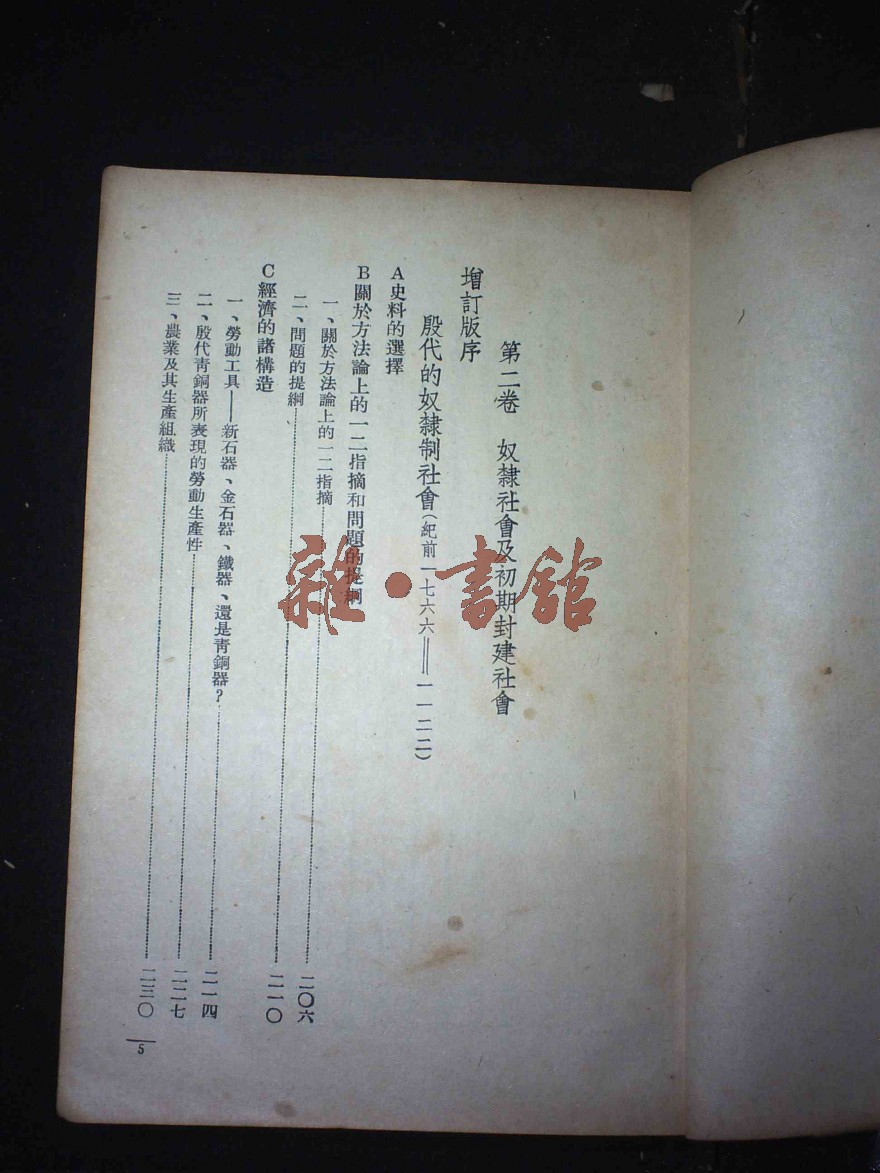 第二卷　奴隸社會及初期封建社會
增訂版序
殷代的奴隸制社會（紀前一七六六——一一二二）
A史料的選擇
B關於方法論上的一二指摘和問題的提綱
一、關於方法論上的一二指摘……二〇六
二、問題的提綱……二一〇
C經濟的諸構造
一、勞動工具——新石器、金石器、鐵器、還是靑銅器？……二一四
二、殷代靑銅器所表現的勞動生產性……二二七
三、農業及其生產組織……二三〇
5
雜·書舘